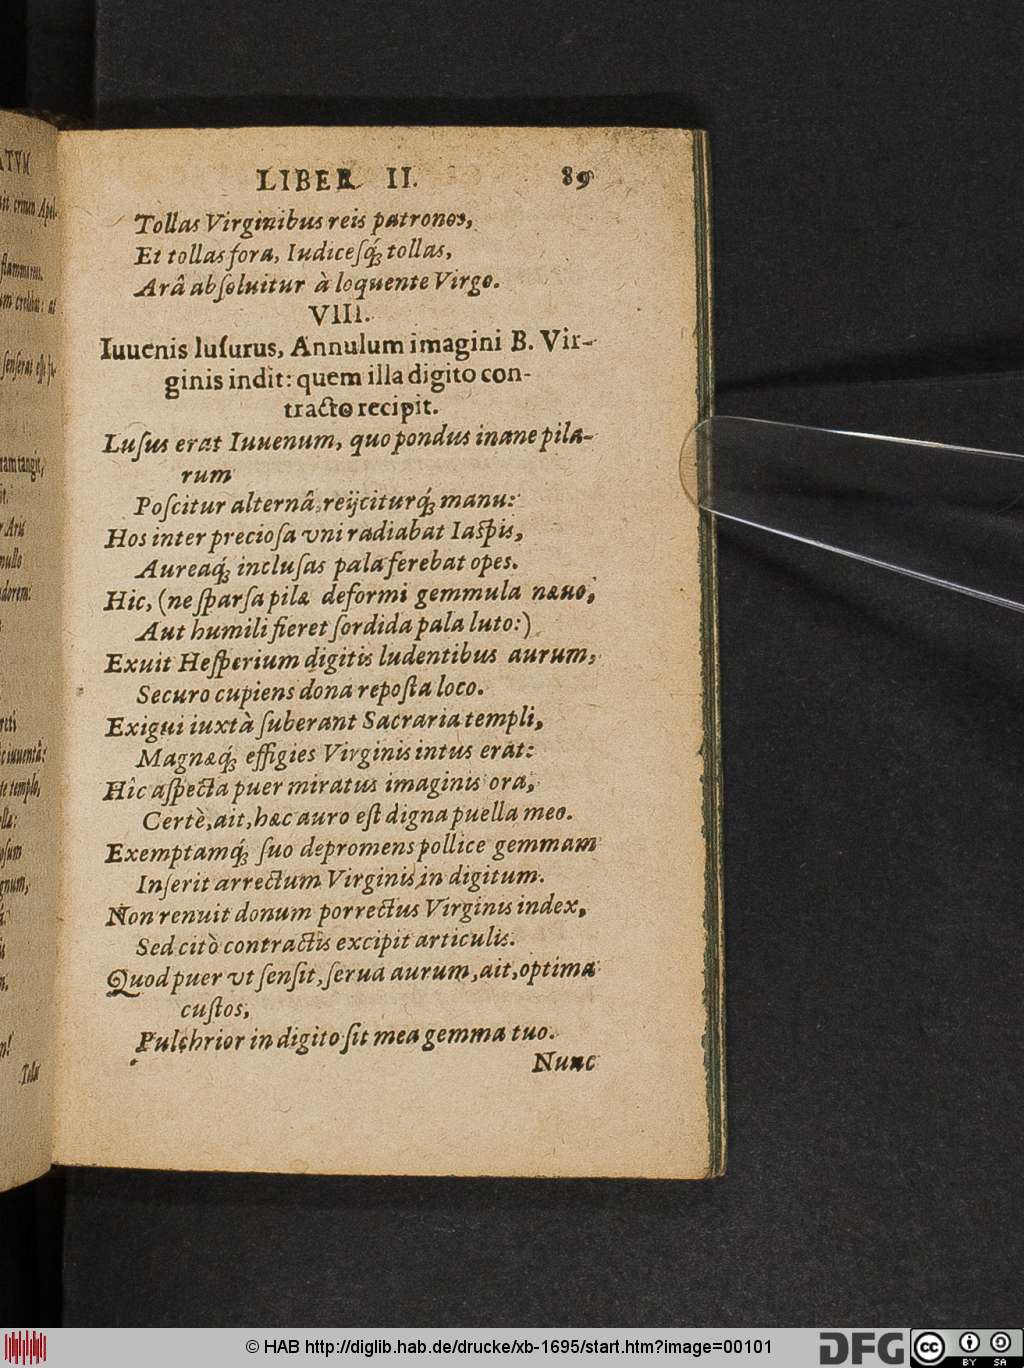 LIBER II. 89
Tollas Virginibus reis patronos,
Et tollas fora, Iudicesq́; tollas,
Arâ absoluitur à loquente Virgo.
VIII.
Iuuenis lusurus, Annulum imagini B. Vir-
ginis indit: quem illa digito con-
tracto recipit.
Lusus erat Iuuenum, quo pondus inane pila-
rum
Poscitur alternâ, reijciturq́; manu:
Hos inter preciosa vni radiabat Iaspis,
Aureaq́; inclusas pala ferebat opes.
Hic, (ne sparsa pilæ deformi gemmula næuo,
Aut humili fieret sordida pala luto:)
Exuit Hesperium digitis ludentibus aurum,
Securo cupiens dona reposta loco.
Exigui iuxtà suberant Sacraria templi,
Magnæq́; effigies Virginis intus erat:
Hîc aspecta puer miratus imaginis ora,
Certè, ait, hæc auro est digna puella meo.
Exemptamq́; suo depromens pollice gemmam
Inserit arrectum Virginis in digitum.
Non renuit donum porrectus Virginis index,
Sed citò contractis excipit articulis.
Quod puer vt sensit, serua aurum, ait, optima
custos,
Pulchrior in digito sit mea gemma tuo.
Nunc
© HAB http://diglib.hab.de/drucke/xb-1695/start.htm?image=00101
DFG cc BY SA